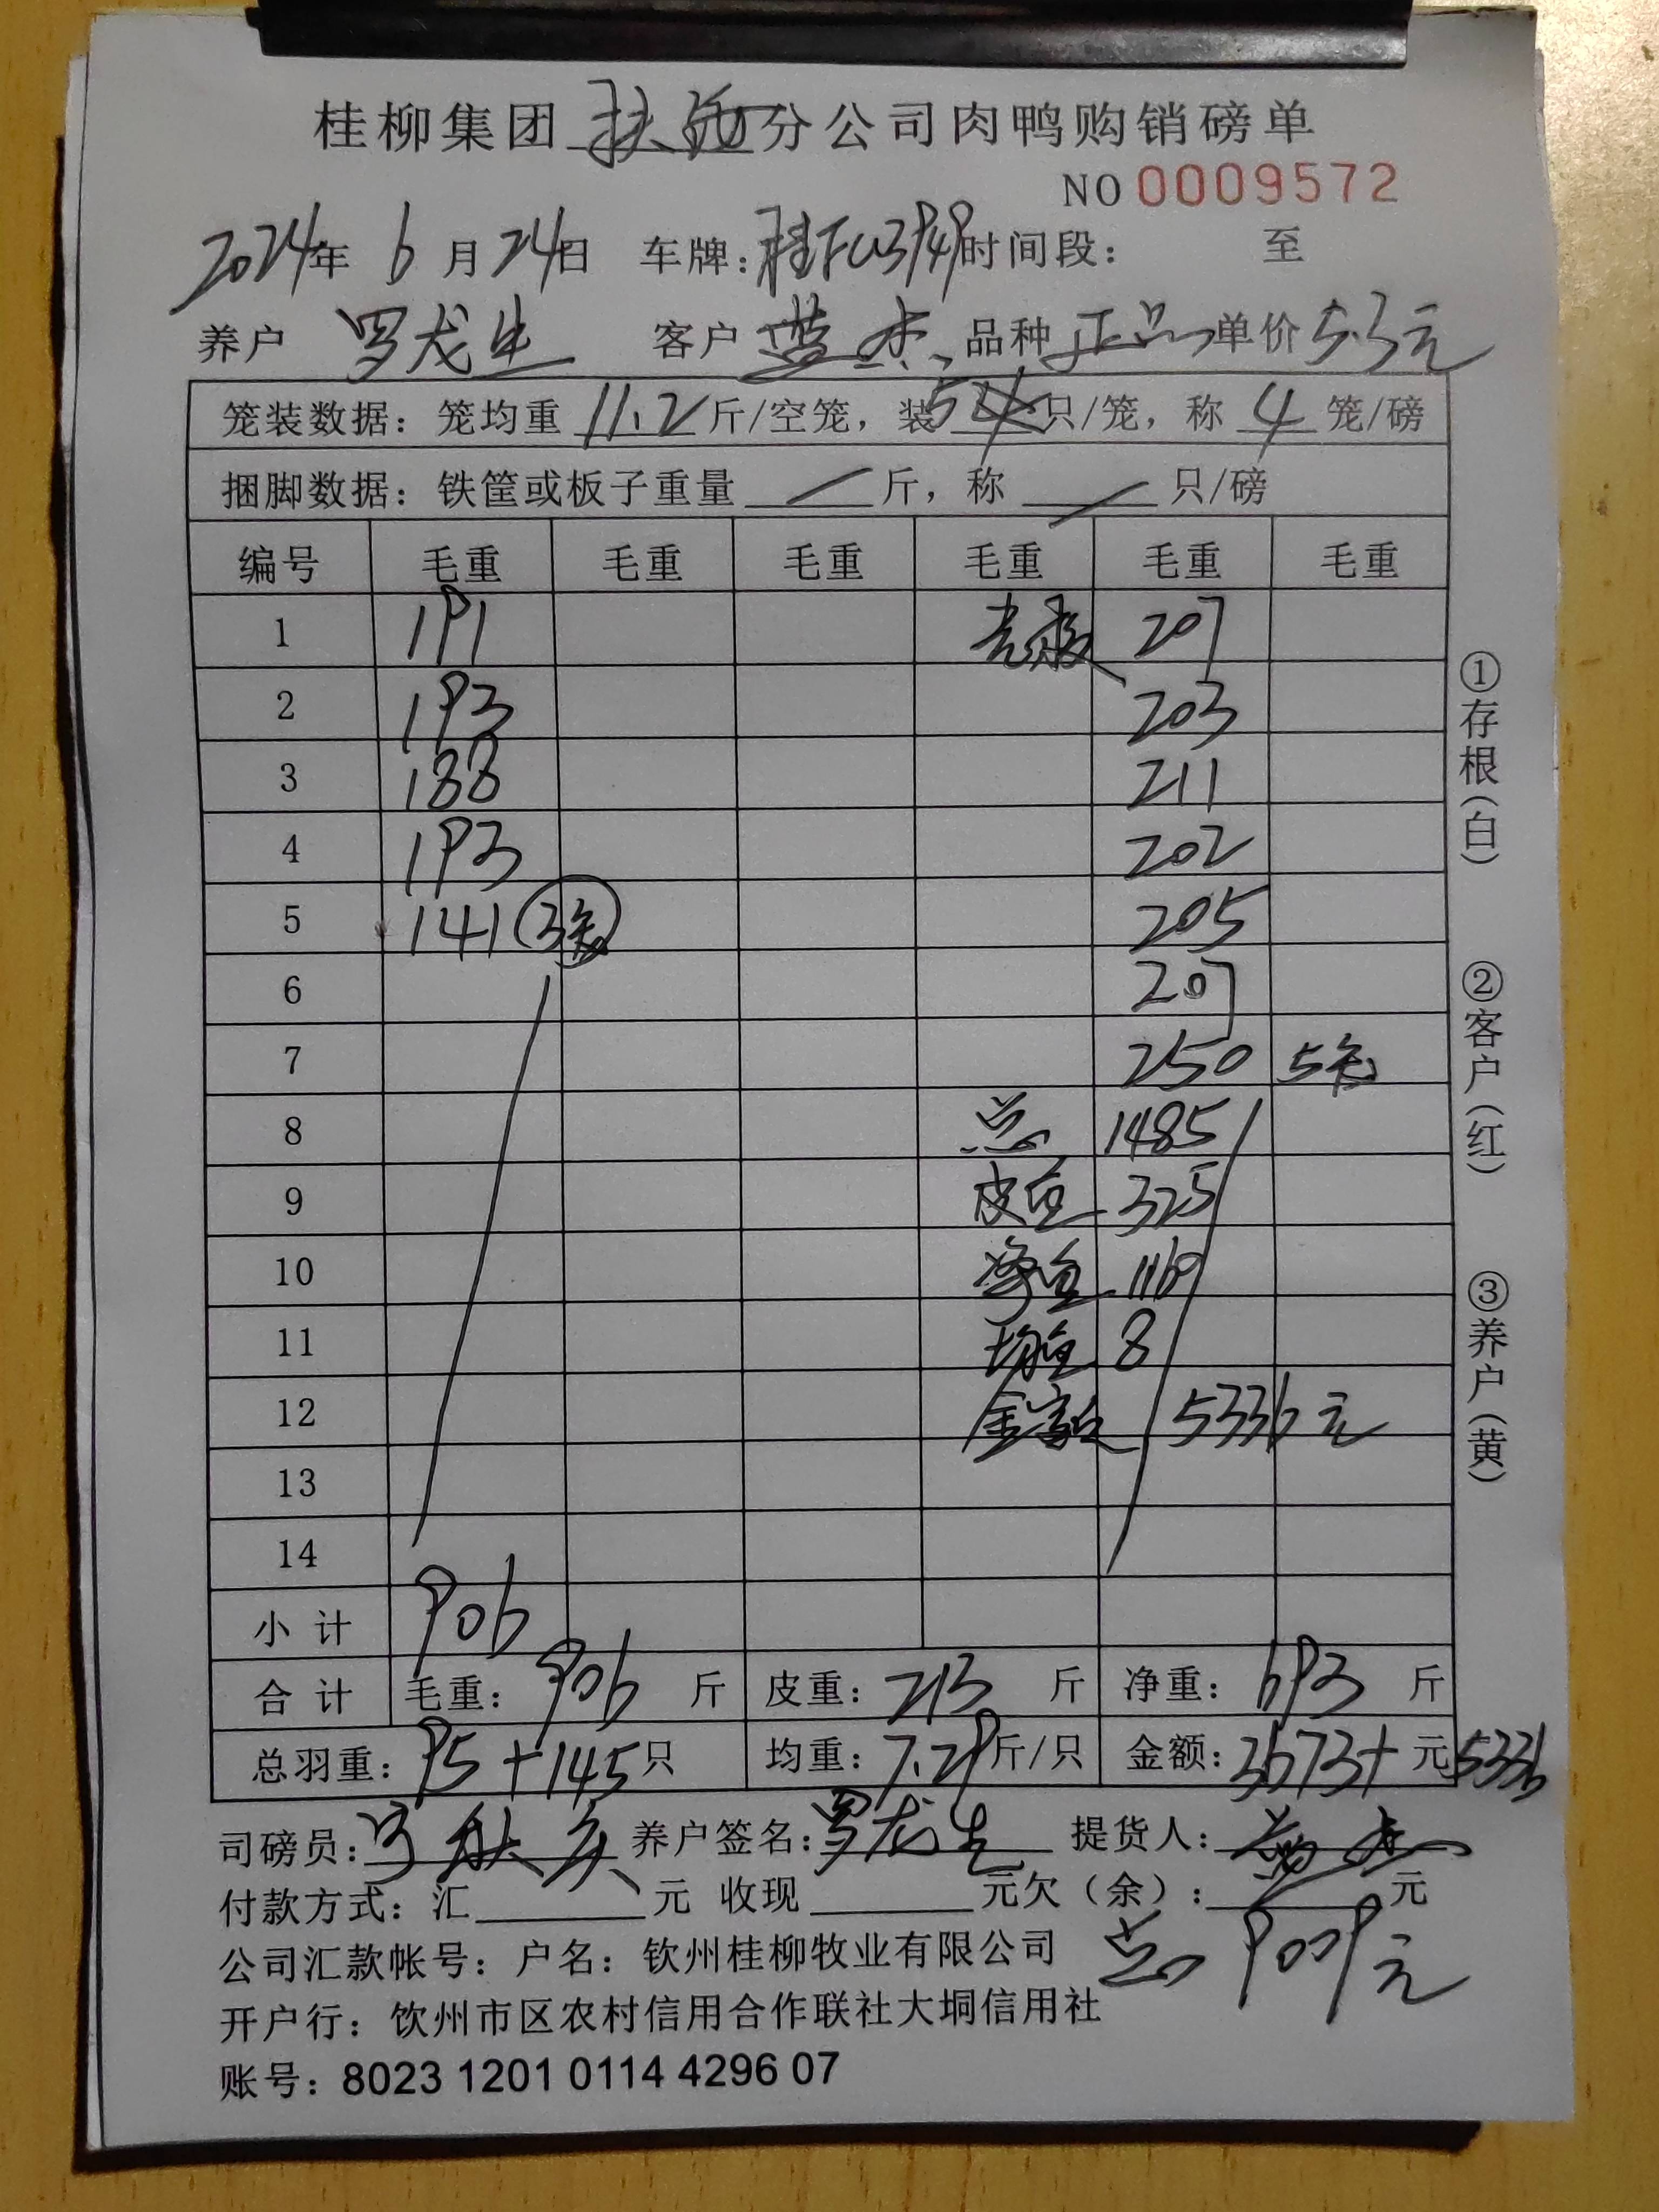 桂柳集团 扶绥 分公司肉鸭购销磅单
NO 0009572
2024年 6 月 24日 车牌: 时间段: 至
养户 罗龙生 客户 蓝杰 品种 正品 单价 5.3元
笼装数据: 笼均重 11.2 斤/空笼, 装 5 只/笼, 称 4 笼/磅
捆脚数据: 铁筐或板子重量 / 斤, 称 / 只/磅
编号 毛重 毛重 毛重 毛重 毛重 毛重
1 191 207
2 193 203
3 188 211
4 193 202
5 141 205
6 207
7 250
8 总 1485
9 皮重 325
10 净重 1160
11 均重 8
12 金额 5336元
13
14
小 计 906
合 计 毛重: 906 斤 皮重: 213 斤 净重: 693 斤
总羽重: 95+145只 均重: 7.29斤/只 金额: 3673+ 元 5336
司磅员: 养户签名: 罗龙生 提货人: 蓝杰
付款方式: 汇 元 收现 元欠(余): 元
公司汇款帐号: 户名: 钦州桂柳牧业有限公司 总 9009元
开户行: 钦州市区农村信用合作联社大垌信用社
账号: 8023 1201 0114 4296 07
①存根(白)
②客户(红)
③养户(黄)